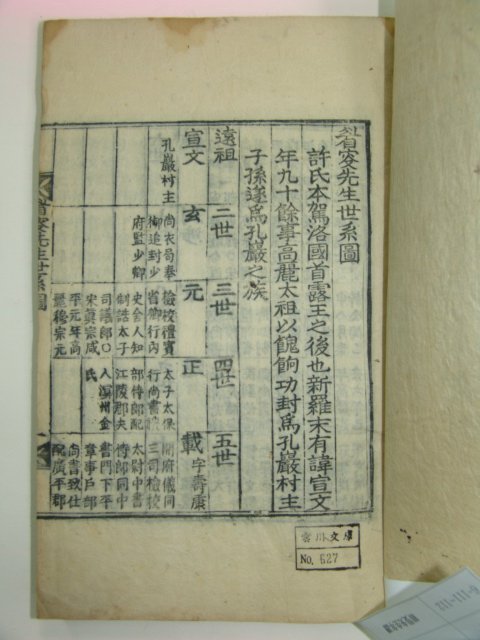 省窓先生世系圖
許氏本駕洛國首露王之後也新羅末有諱宣文
年九十餘事高麗太祖以餽餉功封爲孔巖村主
子孫遂爲孔巖之族
遠祖 二世 三世 四世 五世
宣文 玄 元 正 載 字壽康
孔巖村主
尚衣局奉
御追封少
府監少卿
檢校禮賓
省卿行內
史舍人知
制誥太子
司議郎○
宋眞宗咸
平元年高
麗穆宗元
太子太保
行尚書
部侍郎配
江陵郡夫
人溟州金
氏
開府儀同
三司檢校
太尉中書
侍郎同中
書門下平
章事戶部
尚書致仕
配廣平郡
省窓先生世系圖
雲川文庫
No. 627
211-111-6